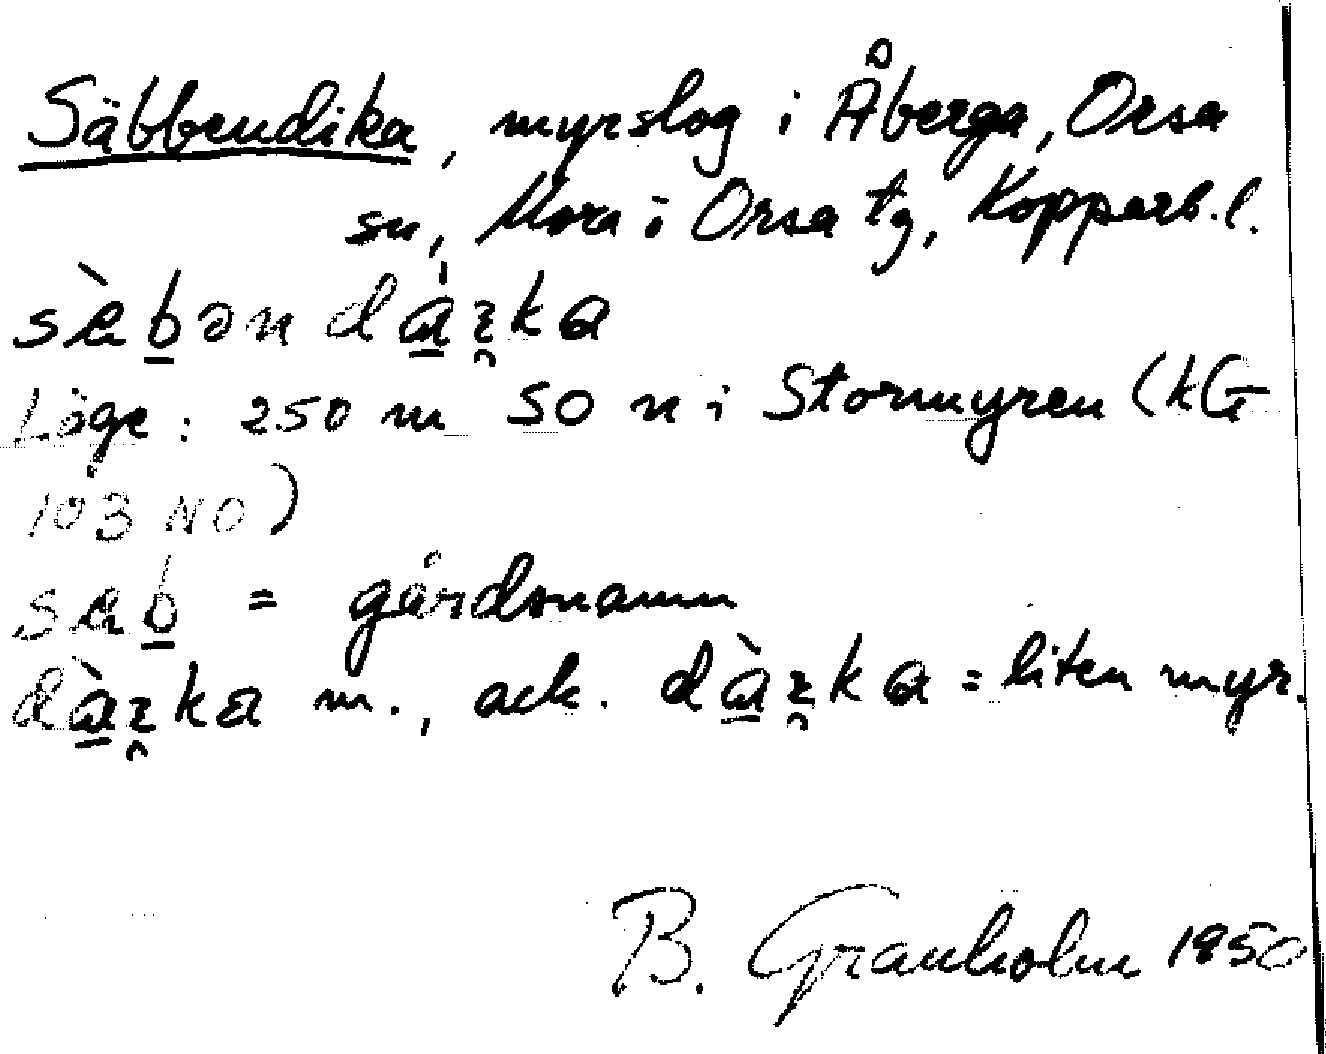 Säbbendika, myrslog i Åberga, Orsa
sn, Mora i Orsa tg, Kopparb. l.
Läge: 250 m SO n i Stormyren (kG
103 NO)
= gårdsnamn
m., ack. = liten myr.
B. Granholm 1950